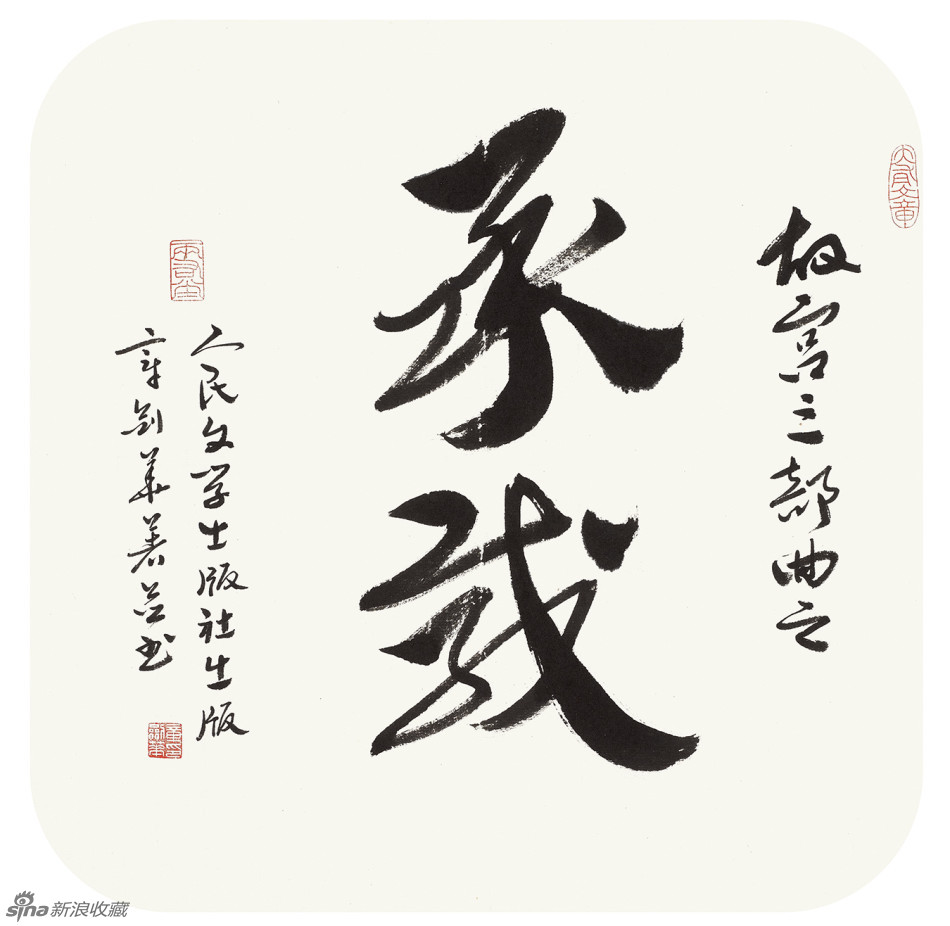 故宫三部曲之
承载
人民文学出版社出版
章剑華著并书
sina新浪收藏